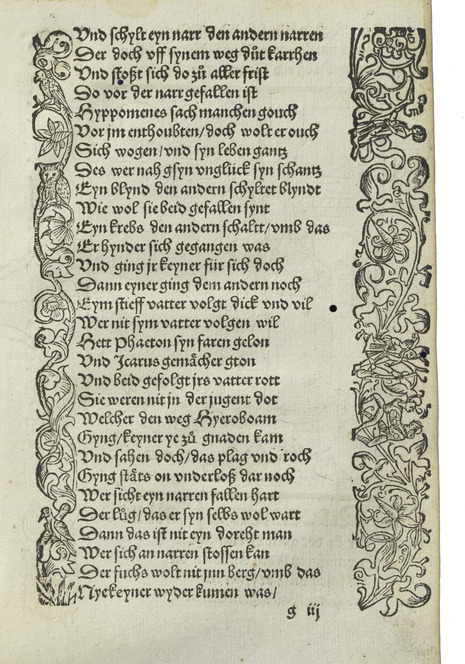 Vnd schylt eyn narr den andern narren
Der doch vff synem weg důt karrhen
Vnd stoßt sich do zů aller frist
Do vor der narr gefallen ist
Hyppomenes sach manchen gouch
Vor jm enthoubten/doch wolt er ouch
Sich wogen/vnd syn leben gantz
Des wer nah gsyn vnglück syn schantz
Eyn blynd den andern schyltet blyndt
Wie wol sie beid gefallen synt
Eyn krebs den andern schaltt/vmb das
Er hynder sich gegangen was
Vnd ging jr keyner für sich doch
Dann eyner ging dem andern noch
Eym stieff vatter volgt dick vnd vil
Wer nit sym vatter volgen wil
Hett Phaeton syn faren gelon
Vnd Icarus gemächer gton
Vnd beid gefolgt jrs vatter rott
Sie weren nit jn der jugent dot
Welcher den weg Hyeroboam
Gyng/keyner ye zů gnaden kam
Vnd sahen doch/das plag vnd roch
Gyng stäts on vnderloß dar noch
Wer sicht eyn narren fallen hart
Der lůg/das er syn selbs wol wart
Dann das ist nit eyn doreht man
Wer sich an narren stossen kan
Der fuchs wolt nit jnn berg/vmb das
Nye keyner wyder kumen was/
g iij